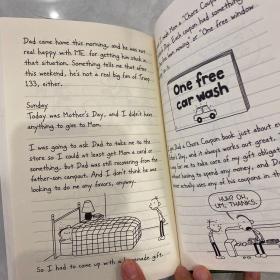 Dad came home this morning, and he was not
real happy with ME for getting him stuck in
that situation. Something tells me that after
this weekend, he's not a real big fan of Troop
133, either.
Sunday
Today was Mother's Day, and I didn't have
anything to give to Mom.
I was going to ask Dad to take me to the
store so I could at least get Mom a card or
something, but Dad was still recovering from the
father-son campout. And I don't think he was
looking to do me any favors, anyway.
So I had to come up with a homemade gift.
Mom a "Chore Coupon
Day. Each coupon had something
lawn mowing" or "One free window
One free
car wash
Dad a Chore Coupon book just about every
Day, and it always works out great.
way for me to take care of my gift obligation
without having to spend any money, and Dad
ever actually uses any of his coupons in the
HUH? OH,
UM, THANKS.